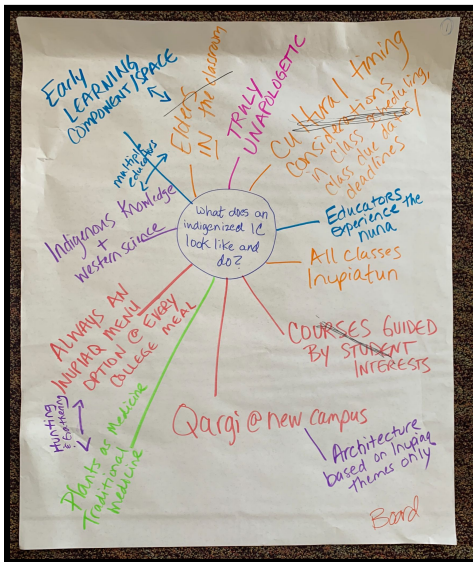 What does an
indigenized IC
look like and
do?
Early
LEARNING
COMPONENT/SPACE
multiple
educators
Elders
IN the classroom
TRULY
UNAPOLOGETIC
Cultural timing
considerations
in class scheduling,
class due dates/
deadlines
Educators
experience the
nuna
All classes
Inupiatun
COURSES GUIDED
BY STUDENT
INTERESTS
Qargi @ new campus
Architecture
based on Inupiaq
themes only
Board
Plants as Medicine
Traditional
Medicine
Hunting
& Gathering
ALWAYS AN
INUPIAQ MENU
OPTION @ EVERY
COLLEGE MEAL
Indigenous Knowledge
+
Western science